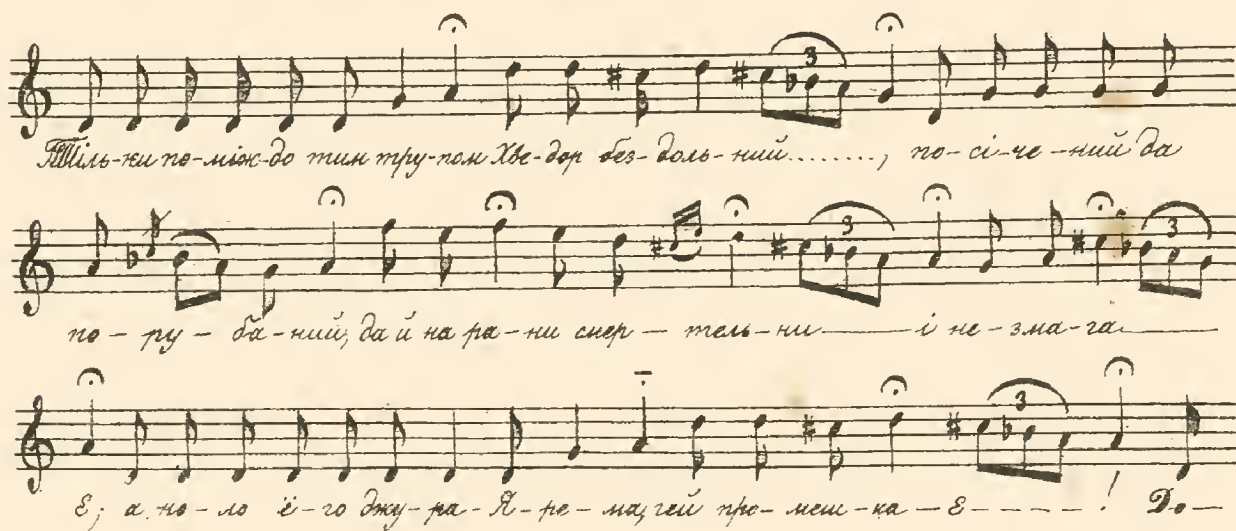 Тіль-ки по-між-до тим тру-пом Хве-дор без-доль-ний........, по-сі-че-ний да
по-ру-ба-ний, да й на ра-ни смер-тель-ни—і не-зма-га—
Є; а ко-ло ё-го джу-ра-Я-ре-ма, гей про-меш-ка-Є----! До—